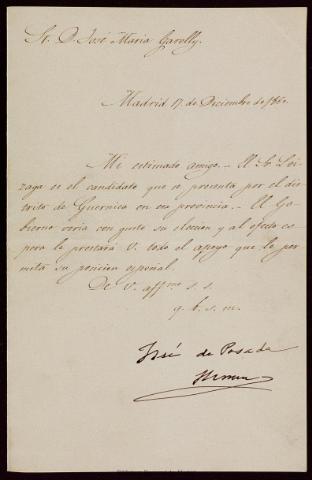 Sr. D. José Maria Garelly.
Madrid 17 de Diciembre de 1860.
Mi estimado amigo. - El Sr Loi-
zaga es el candidato que se presenta por el dis-
trito de Guernica en esa provincia. - El Go-
bierno veria con gusto su eleccion y al efecto es-
pero le prestará V. todo el apoyo que le per-
mita su posicion especial.
De V. affmo s. s.
q. b. s. m.
José de Posada
Herrera